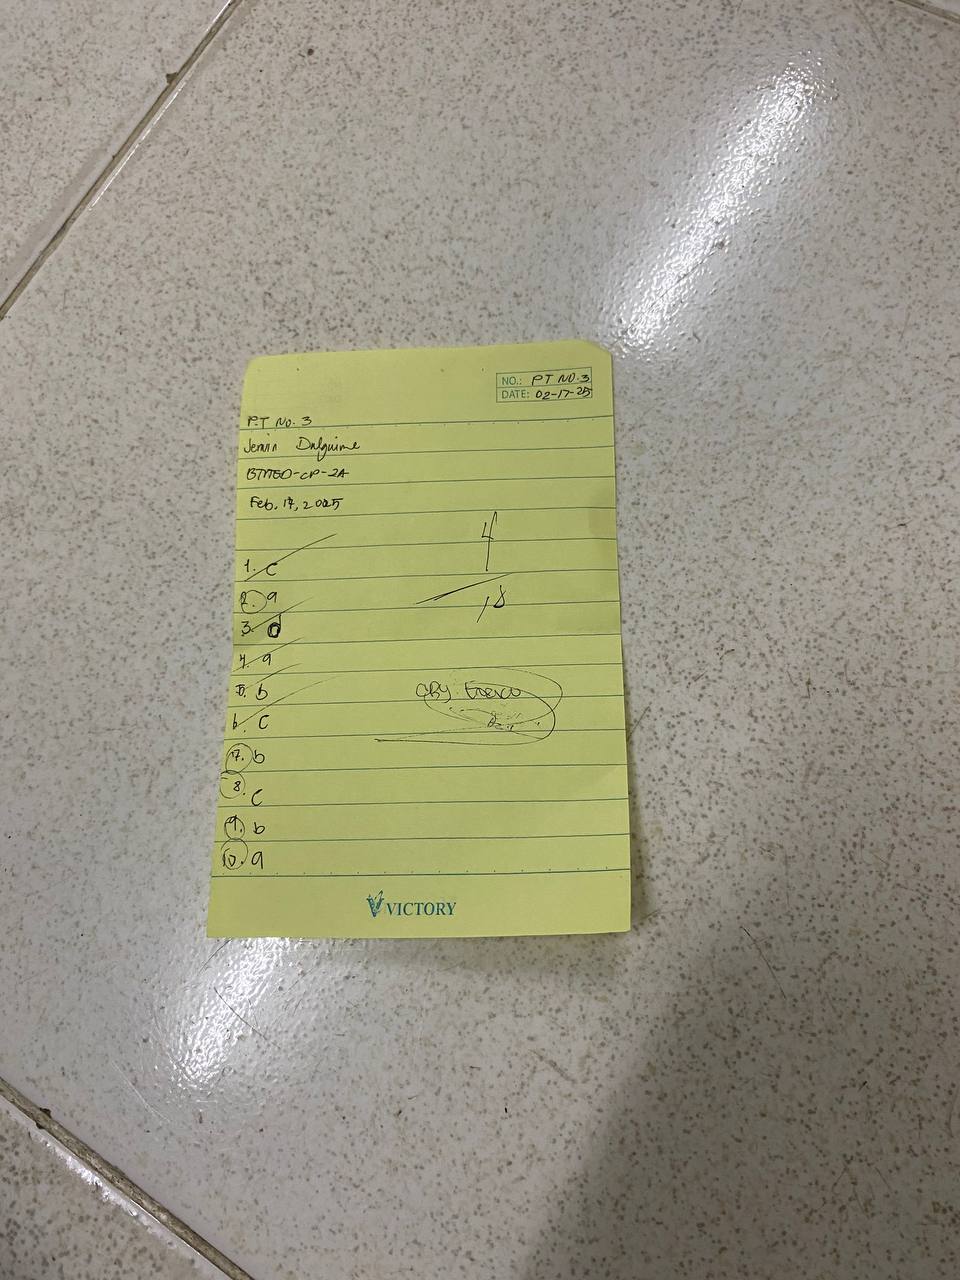 NO.: PT NO.3
DATE: 02-17-25
P.T No. 3
Jerwin Dalguime
BTVTED-CP-2A
Feb. 17, 2025
4
10
1. c
2. a
3. d
4. a
5. b
6. c
7. b
8. c
9. b
10. a
VICTORY